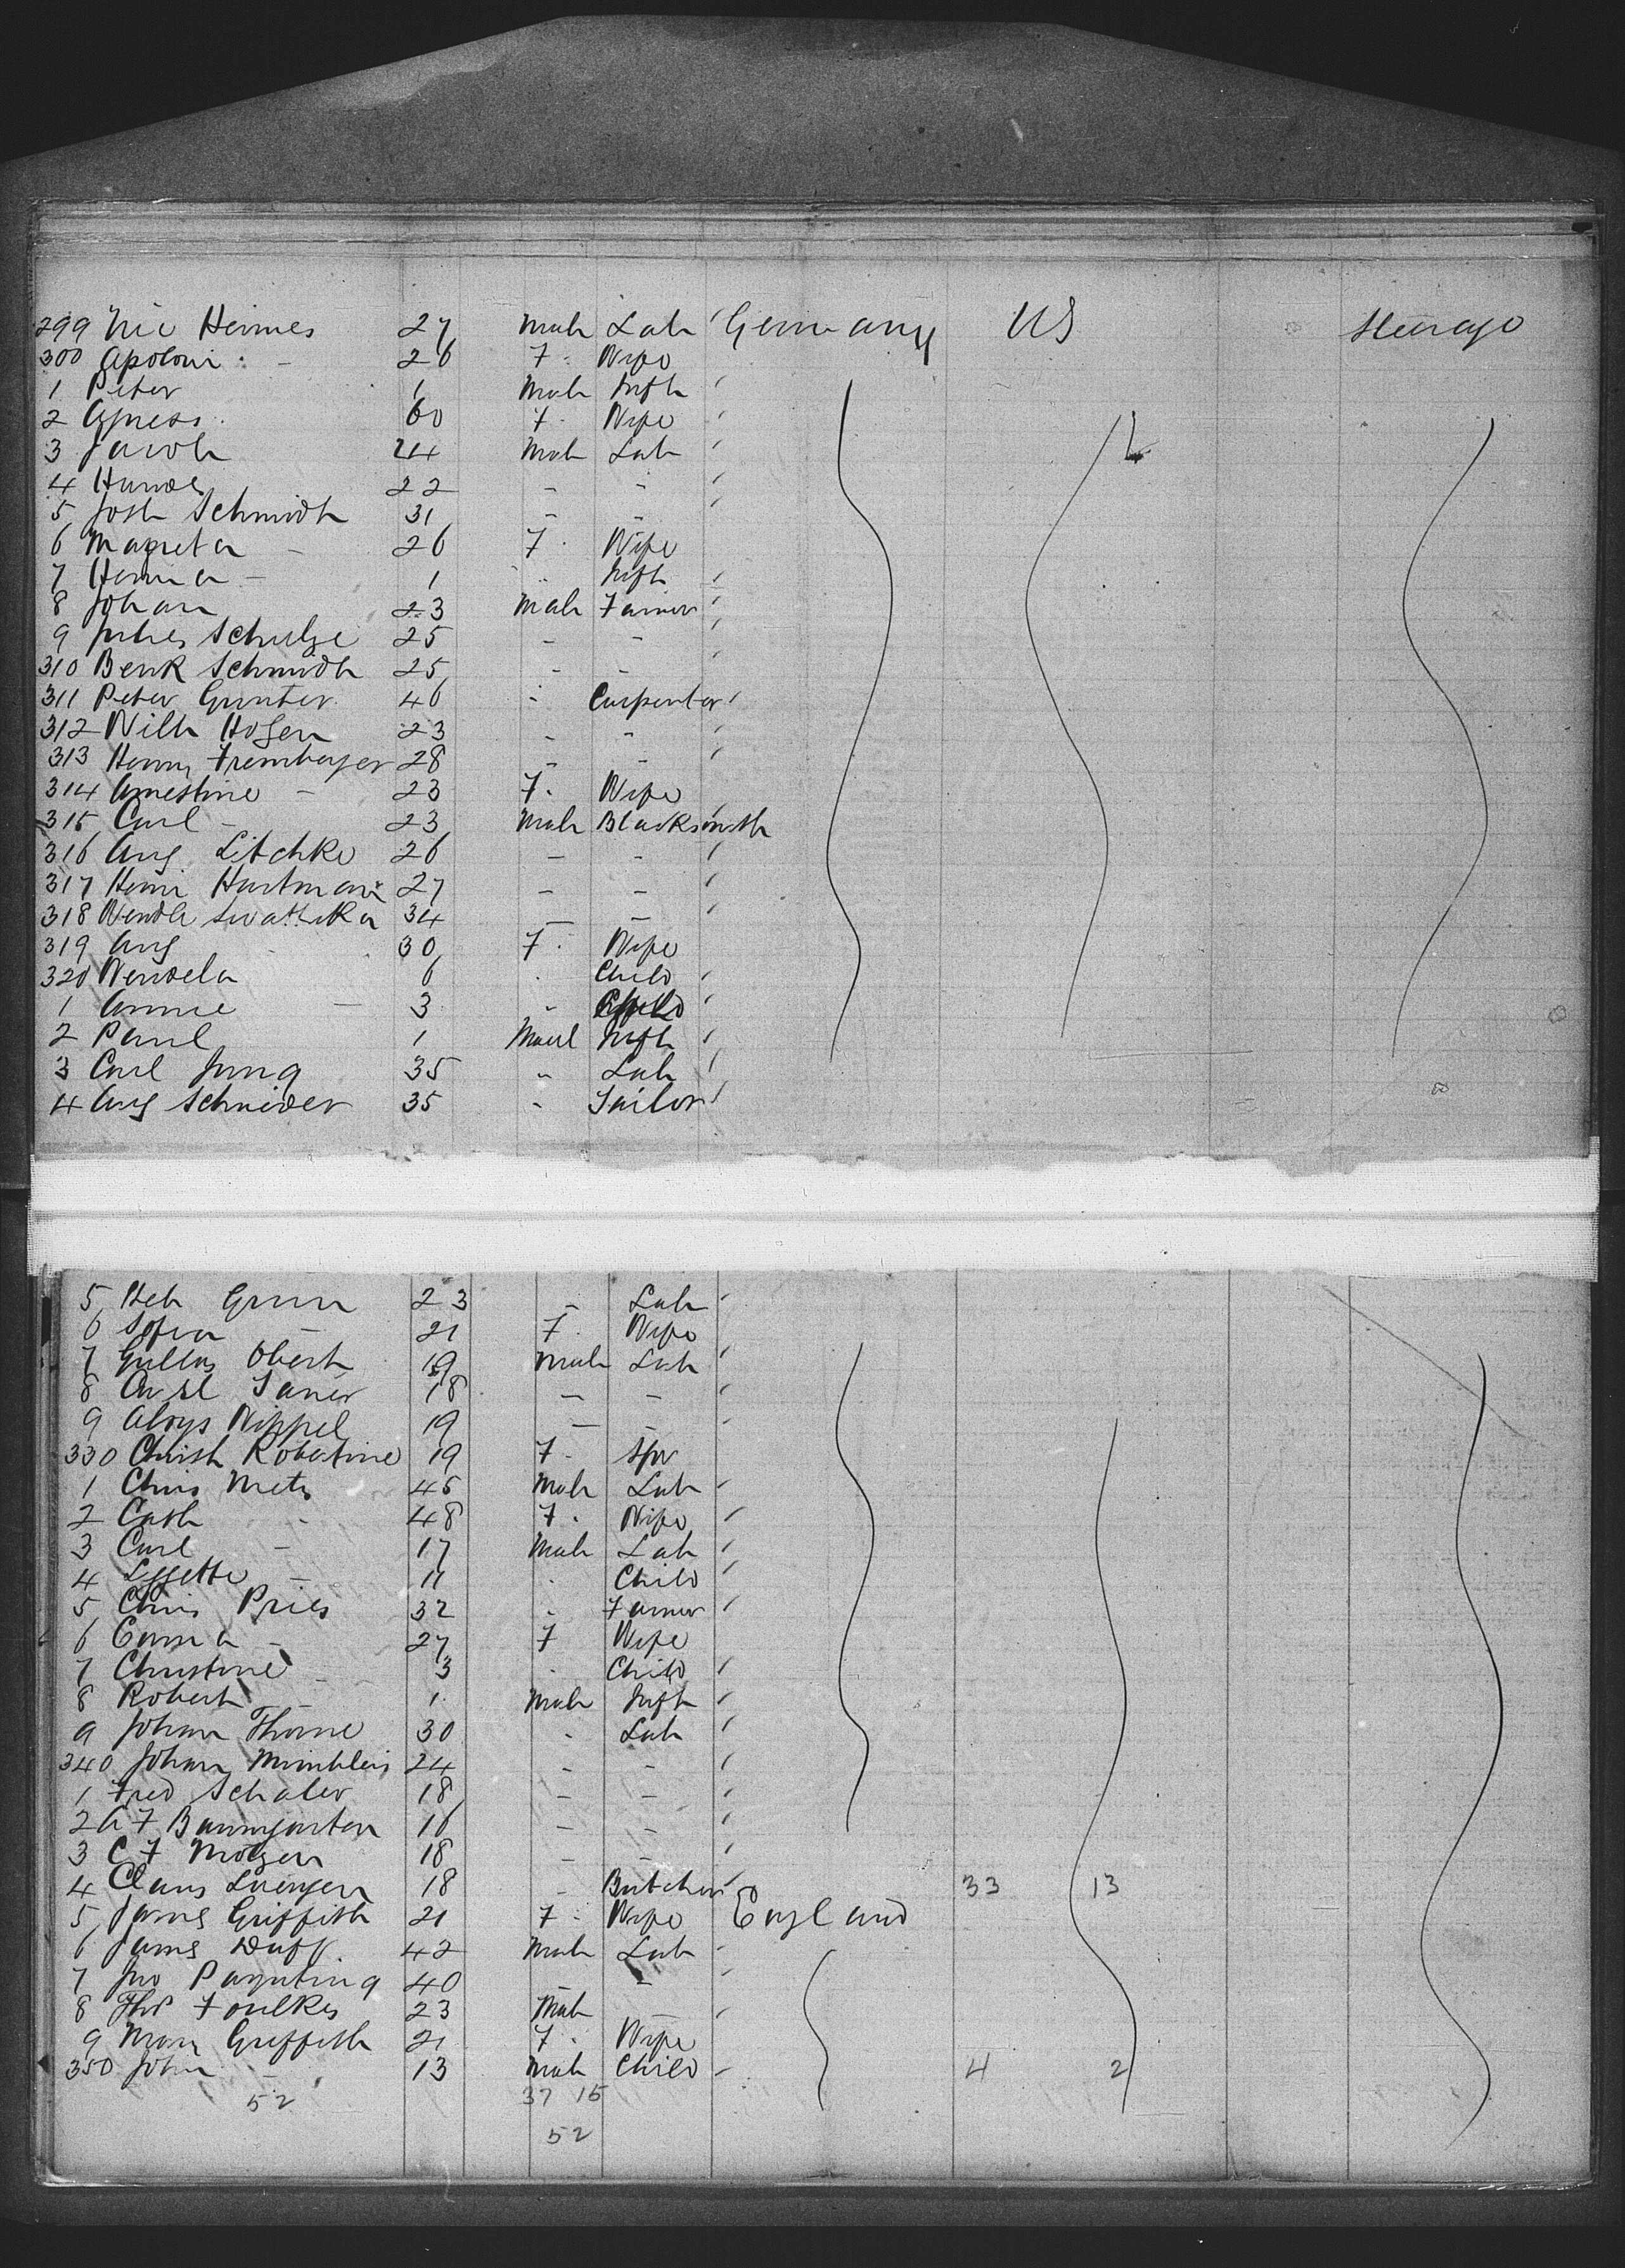 299 Nic Heimes 27 Male Lab Germany US Steerage
300 Apoloni : - 26 F. Wife
1 Peter 1 Male Inft
2 Agness 60 F. Wife
3 Jacob 24 Male Lab
4 22 - -
5 Josh Schmidt 31 - -
6 Magreta - 26 F. Wife
7 Herma - 1 " Inft
8 Johan 23 Male Farmer
9 Jules Schulze 25 - -
310 Schmidt 25 - -
311 Peter Gunter 46 - Carpenter
312 Wilh Hofen 23 - -
313 Henry 28 - -
314 Arnestine - 23 F. Wife
315 Carl - 23 Male Blacksmith
316 Aug Litchke 26 - -
317 Henri Hartman 27 - -
318 34 - -
319 Aug 30 F. Wife
320 Wendela 6 . Child
1 Annie - 3 " Child
2 Paul 1 Mael Inft
3 Carl Jung 35 " Lab
4 Aug Schneider 35 - Tailor
5 Heh Grun 23 - Lab
6 Sofia - 21 F. Wife
7 Obert 19 Male Lab
8 Carl 18 - -
9 Aloys Nippel 19 - -
330 Christ Robatine 19 F. Spr
1 Chris Metz 45 Male Lab
2 Cath - 48 F. Wife
3 Carl - 17 Male Lab
4 Lysette - 11 . Child
5 Chris Pries 32 . Farmer
6 Emma - 27 F Wife
7 Christine - 3 . Child
8 Robert - 1 Male Inft
9 Johan Thorne 30 . Lab
340 Johan 24 - -
1 Fred Schaler 18 - -
2 A F Baumgarten 16 - -
3 C F 18 - -
4 Claus Luengen 18 - Butcher 33 13
5 James Griffith 21 F - Wife England
6 James Duff 42 Male Lab
7 Jno 40 - -
8 Thos Foulkes 23 Male -
9 Mary Griffith 21 F. Wife
350 John - 13 Male Child 4 2
52 37 15
52